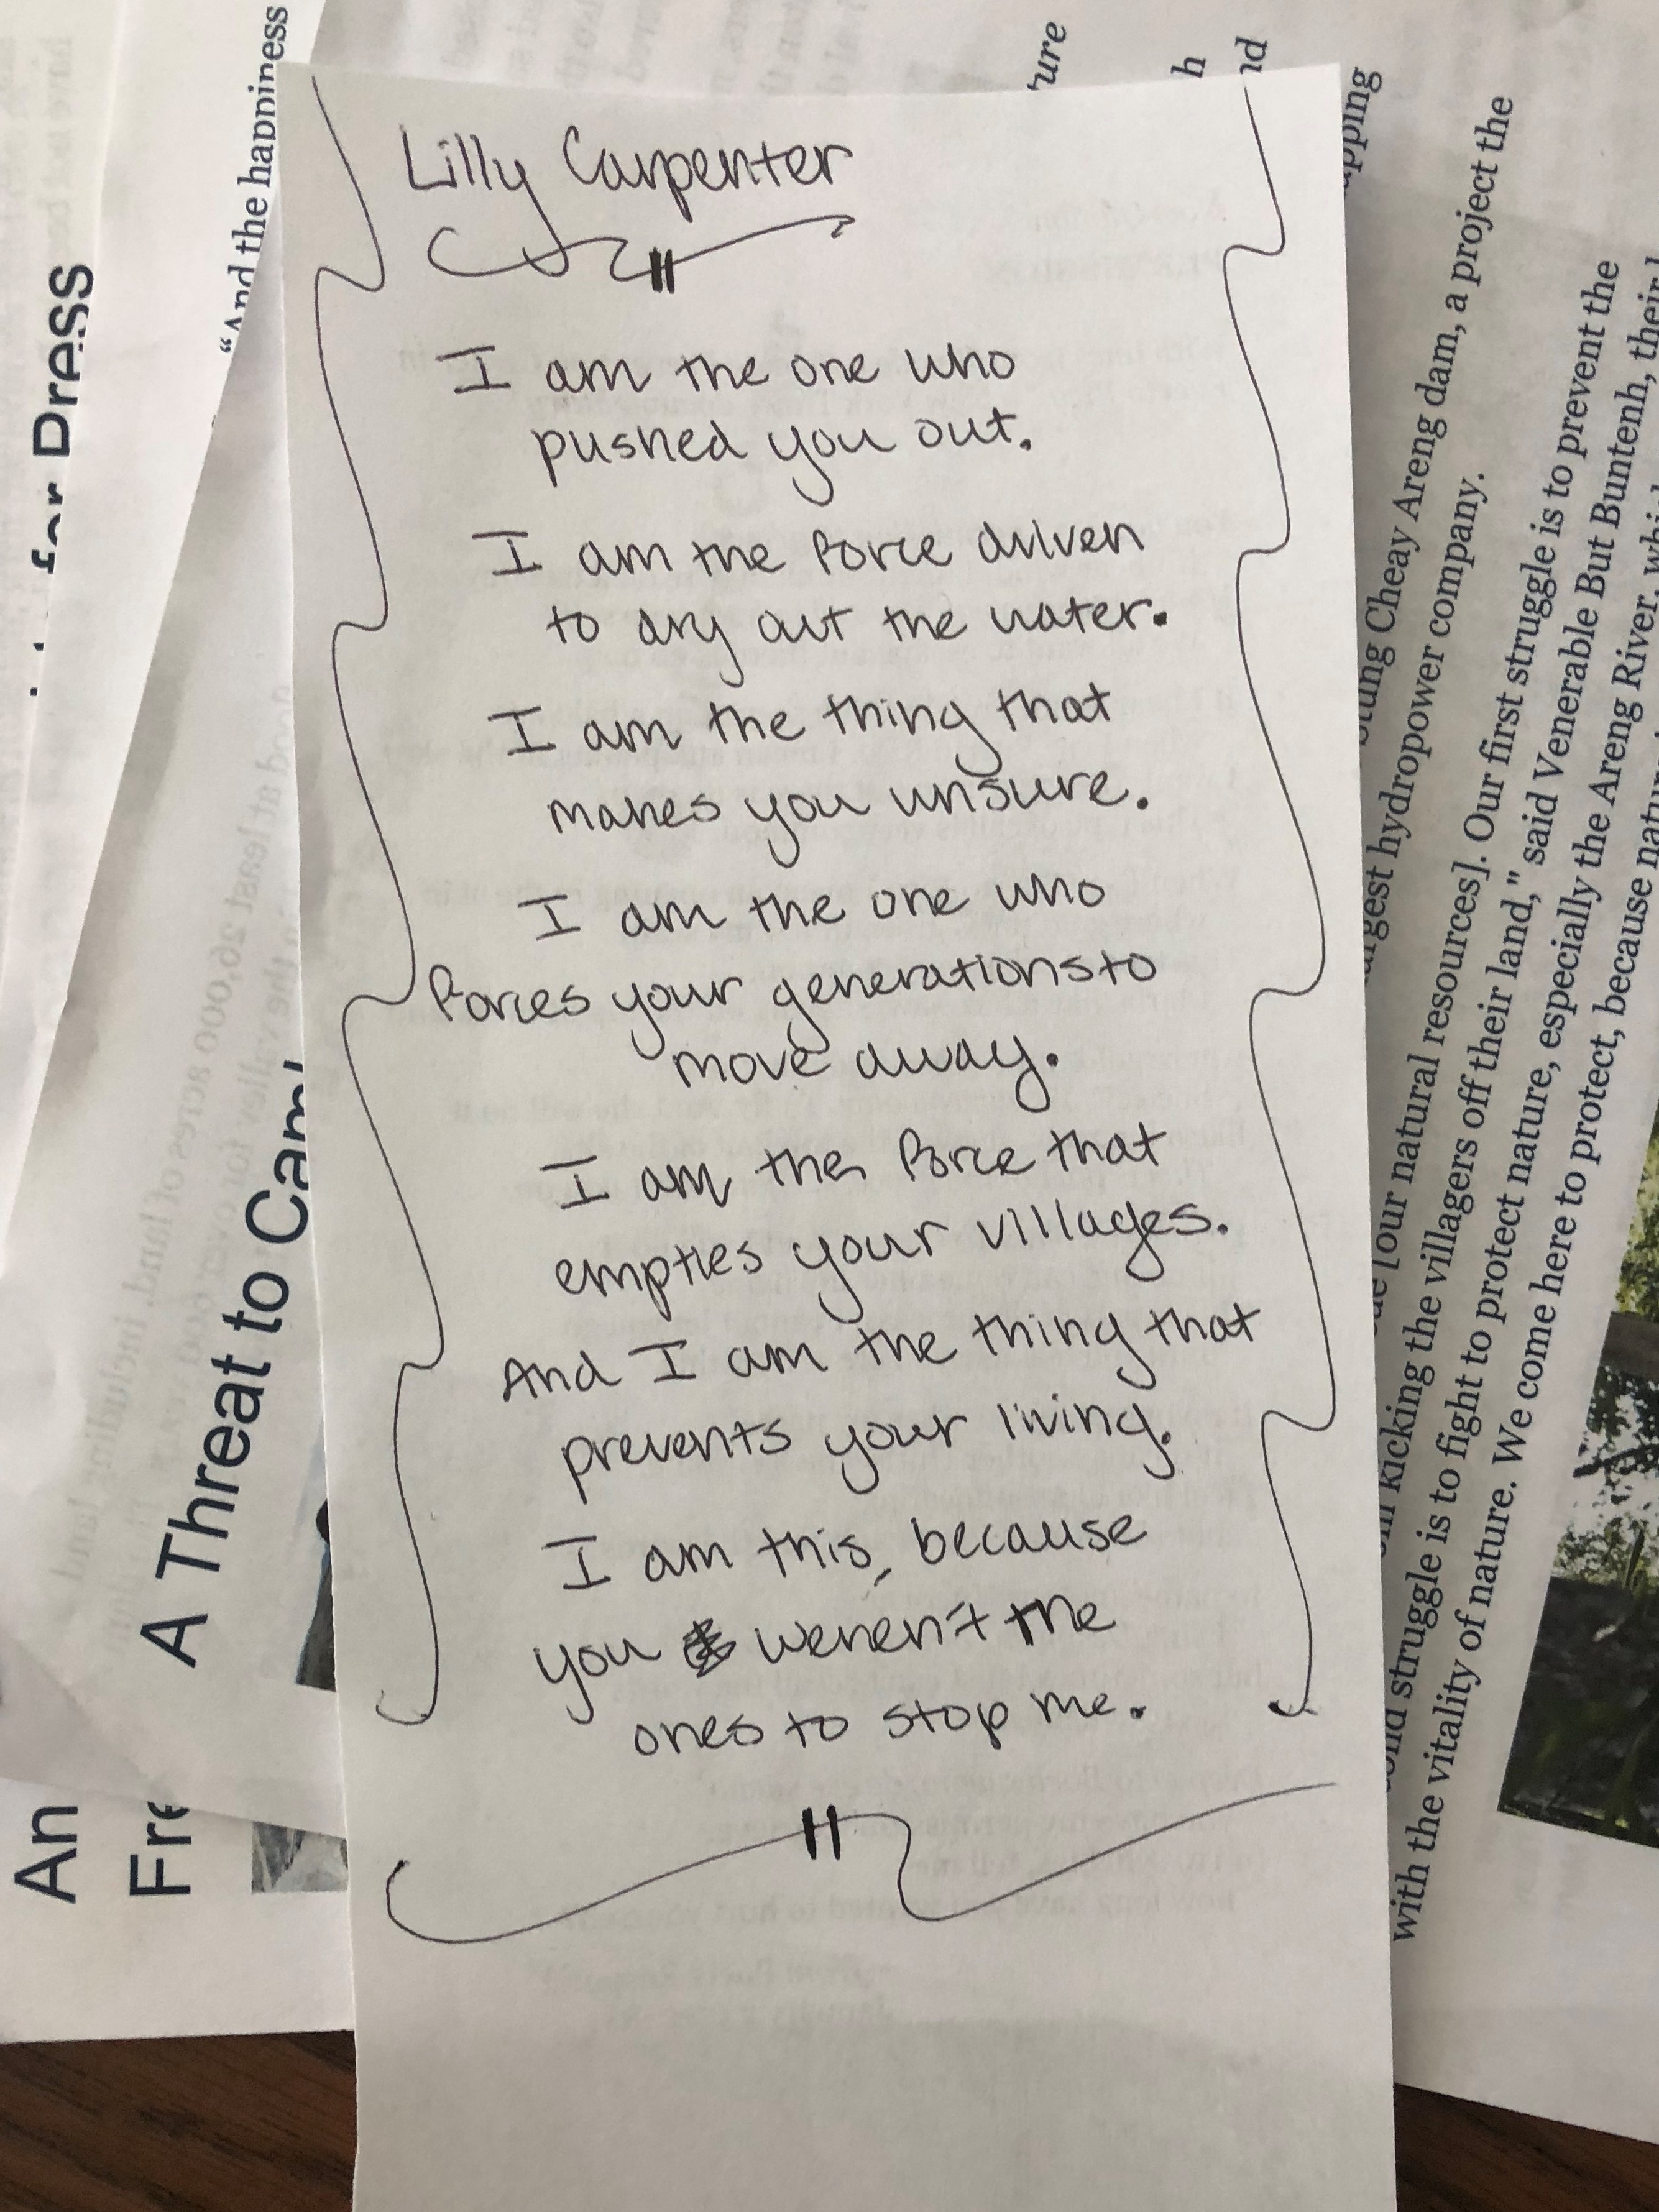 Lilly Carpenter
I am the one who
pushed you out.
I am the force driven
to dry out the water.
I am the thing that
makes you unsure.
I am the one who
forces your generations to
move away.
I am the force that
empties your villages.
And I am the thing that
prevents your living.
I am this, because
you weren't the
ones to stop me.
An
for Dress
Fre
A Threat to Cam
"And the happiness
ure
h
nd
pping
Cheay Areng dam, a project the
largest hydropower company.
[our natural resources]. Our first struggle is to prevent the
kicking the villagers off their land," said Venerable But Buntenh, their
struggle is to fight to protect nature, especially the Areng River, which
with the vitality of nature. We come here to protect, because nature